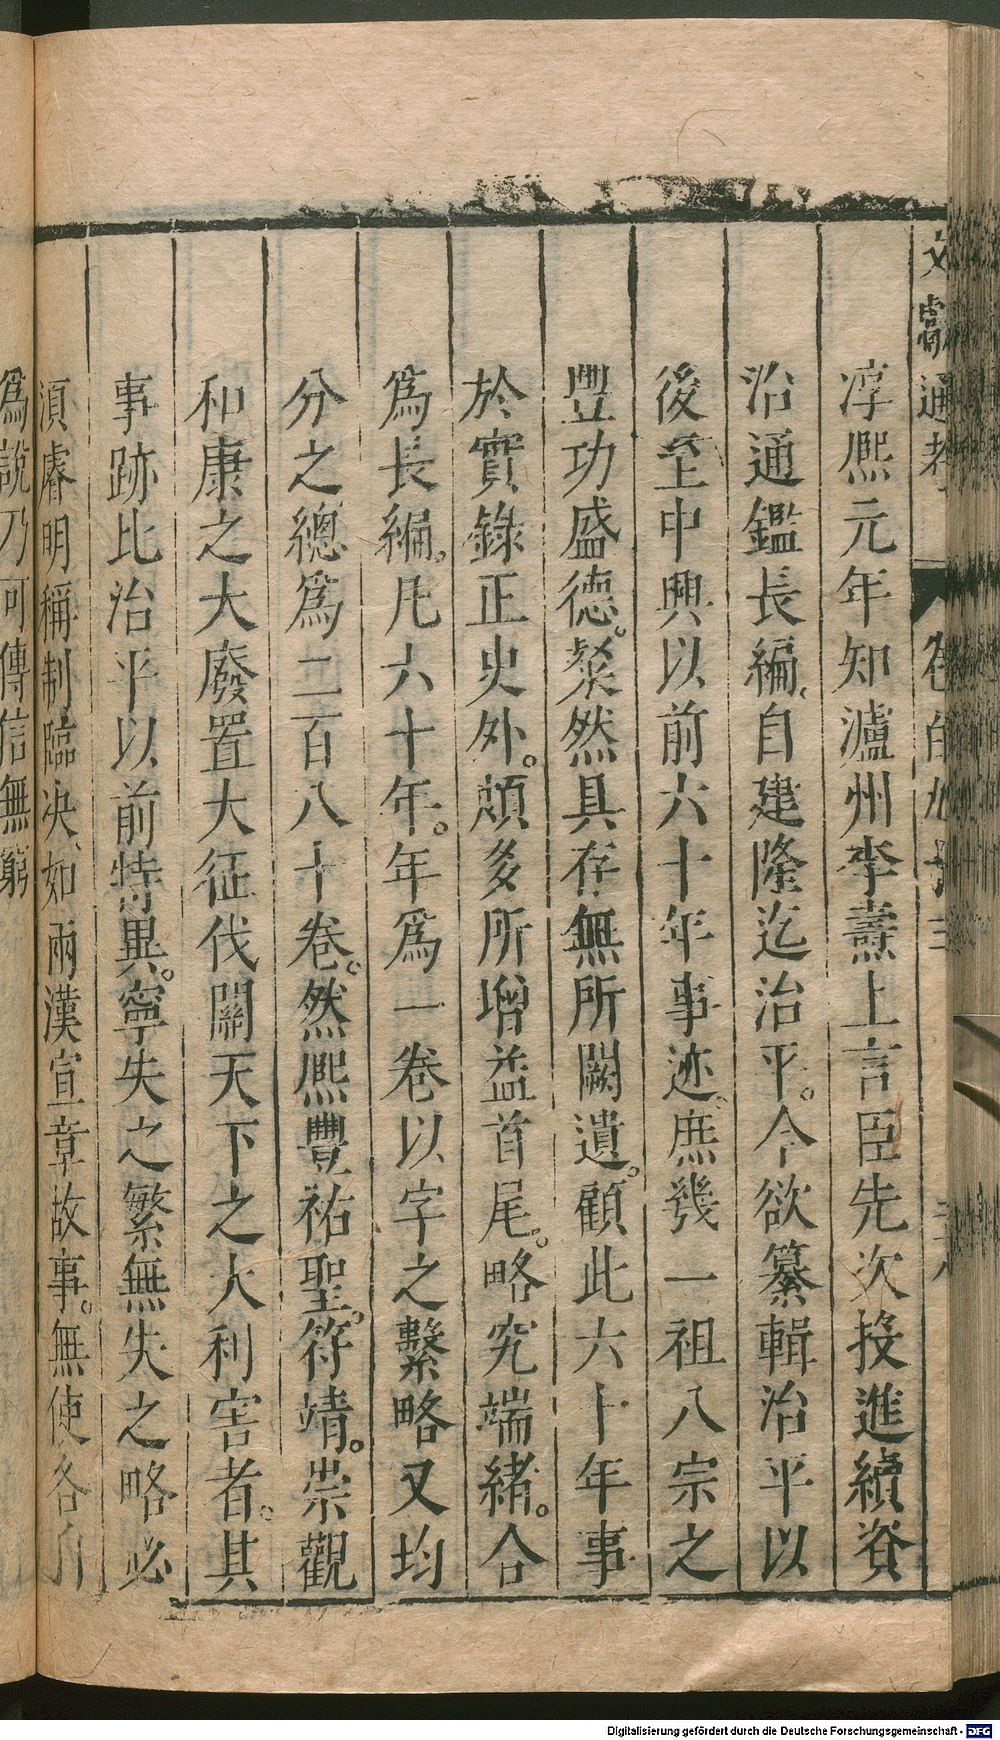 文獻通考　卷百九十三
淳熈元年知瀘州李燾上言臣先次投進續資
治通鑑長編、自建隆迄治平。今欲纂輯治平以
後至中興以前六十年事迹、庶幾一祖八宗之
豐功盛德。粲然具存無所闕遺。顧此六十年事
於實錄正史外。頗多所增益首尾。略究端緒。合
爲長編。凡六十年。年爲一卷以字之繫略又均
分之總爲二百八十卷。然熈豐祐聖。符靖。崇觀
和康之大廢置大征伐關天下之大利害者。其
事跡比治平以前特異。寧失之繁無失之略必
湏睿明稱制臨决、如兩漢宣章故事。無使各自
爲說乃可傳信無窮
Digitalisierung gefördert durch die Deutsche Forschungsgemeinschaft - DFG